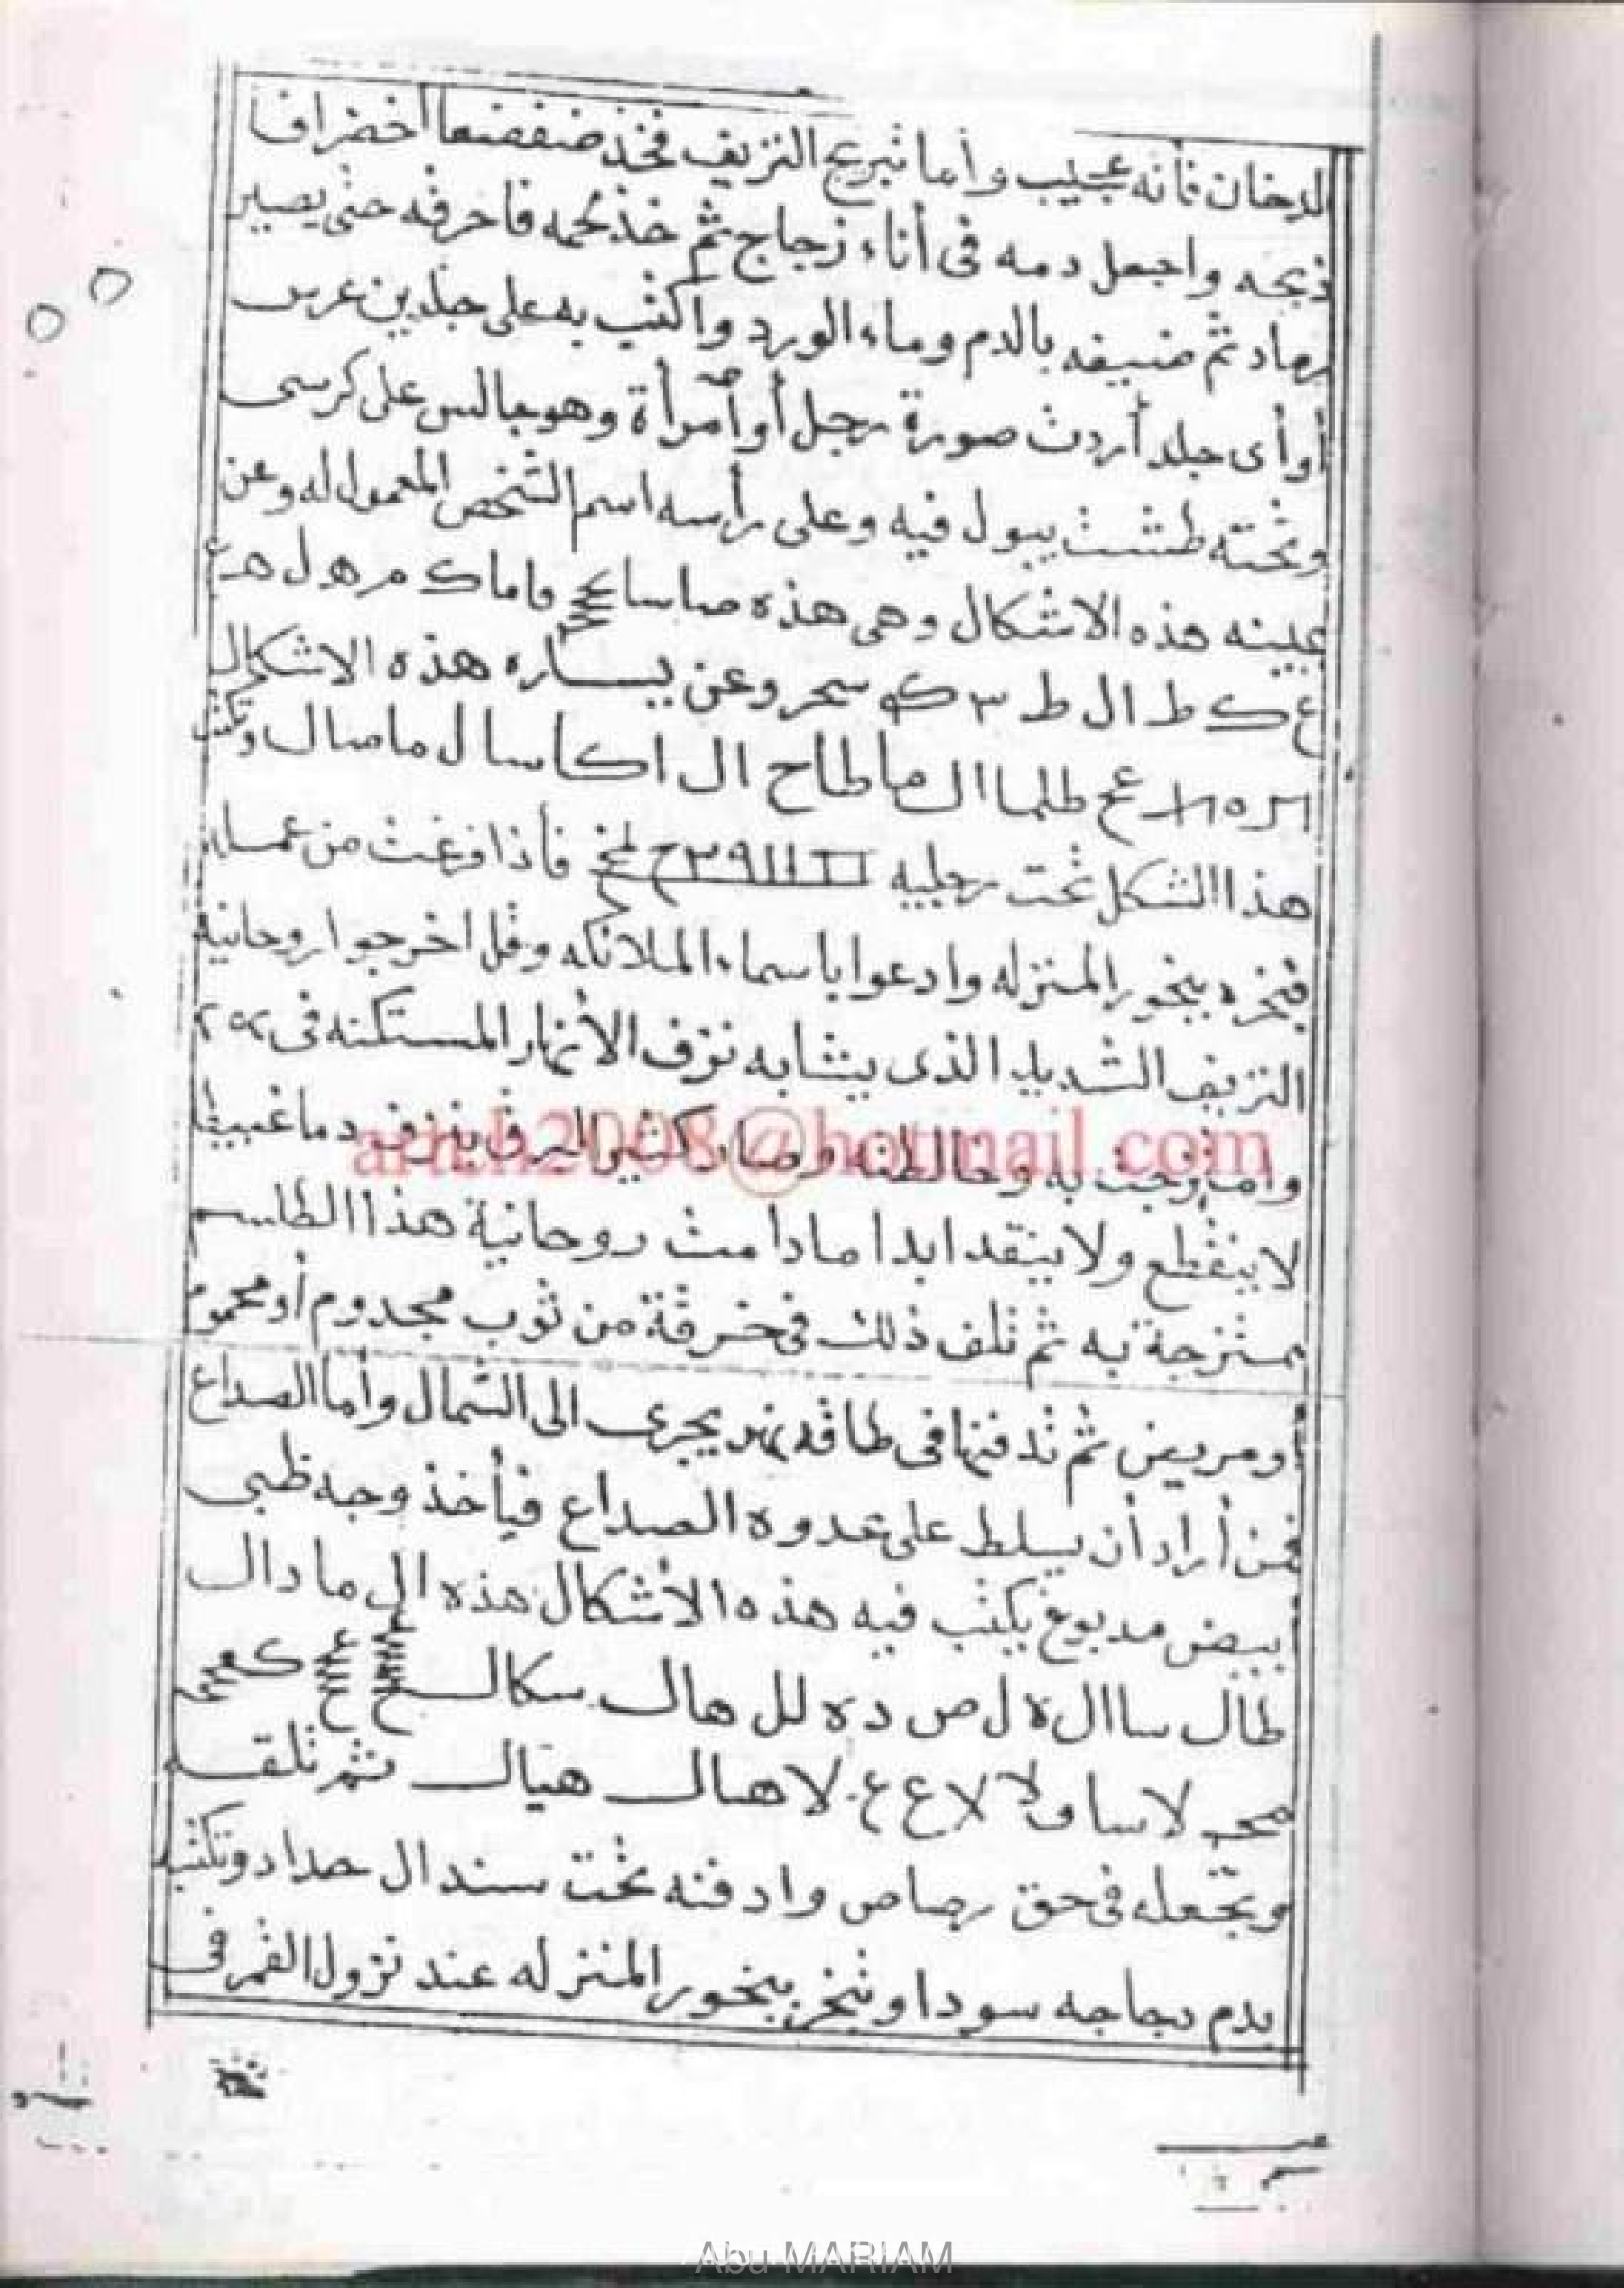 الدخان فأنه عجيب وأما تبريج النزيف فخذ ضفضعا أخضرا فا
ذبحه واجعل دمه فى أناء زجاج ثم خذ لحمه فاحرقه حتى يصير
رماد ثم ضيفه بالدم وماء الورد واكتب به على جلد بن عرس
أو أى جلد أردت صورة رجل أو أمرأة وهو جالس على كرسى
وتحته طشت يبول فيه وعلى رأسه اسم الشخص المعمول له وعن
يمينه هذه الاشكال وهى هذه صاسا فاماك م هو ل هـ ع
ع ك ط ال ط ٣ كو سحر وعن يساره هذه الاشكال
طلما ال ماطاح ال اكاسا ل ماصال وتكتب
هذا الشكل تحت رجليه فأذا فرغت من عمله
فبخره ببخور المنزله وادعوا باسماء الملائكه وقل اخرجوا روحانية
النزيف الشديد الذى يشابه نزف الأنهار المستكنه فى
وامتزجت به وخالطته وصار كثير ينزف دما غبيطا
لا ينقطع ولا ينقد ابدا مادامت روحانية هذا الطلسم
ممتزجة به ثم تلف ذلك فى خرقة من ثوب مجدوم أو محموم
ومريض ثم تدفنها فى طاقه نهر يجرى الى الشمال وأما الصداع
فمن أراد أن يسلط على عدوه الصداع فيأخذ وجه ظبى
بيض مدبوغ يكتب فيه هذه الأشكال هذه ال مادال
طال سا ال ة ل ص د ه لل هال سكال
لاسا ولا لا ع ع لا هال هيال ثم تلقه
وتجعله فى حق رصاص وادفنه تحت سندال حداد وتكتب
بدم دجاجه سودا وتبخر ببخور المنزله عند نزول القمر فى
arich2008@hotmail.com
Abu MARIAM